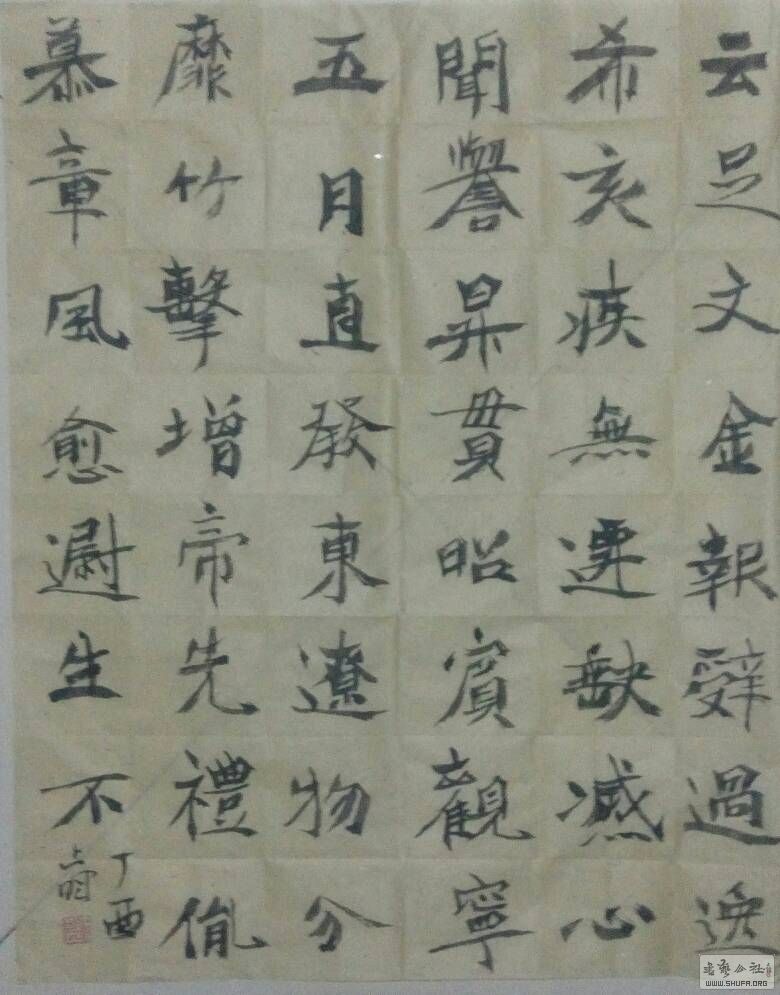 云足文金報辤過逸
希亥疾無遷缺感心
聞譽昇貫昭賓觀寧
五月直發東遼物分
靡竹擊增帝先禮胤
慕章風愈生不
丁酉
书艺公社
WWW.SHUFA.ORG